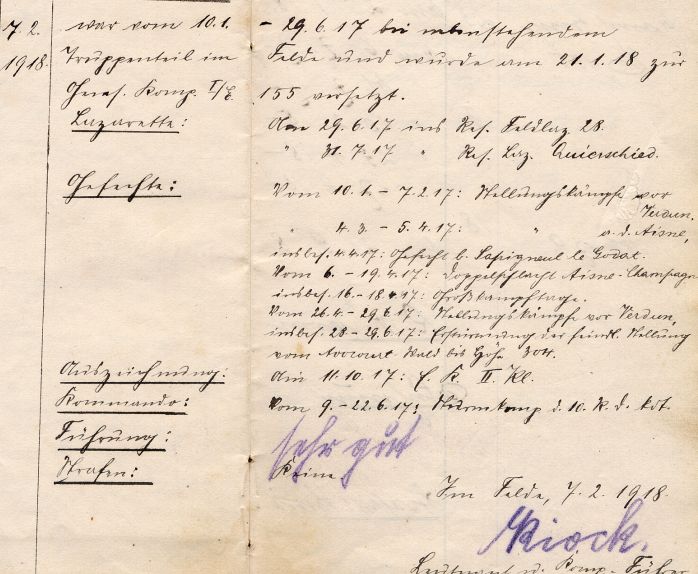 7. 2. war vom 10. 1. - 29. 6. 17 bei nebenstehendem
1918. Truppenteil im Felde und wurde am 21. 1. 18 zur
Genes. Komp. I/E. 155 versetzt.
Lazarette: Am 29. 6. 17 ins Res. Feldlaz. 28.
" 31. 7. 17 " Res. Laz. Quierschied.
Gefechte: Vom 10. 1. - 7. 2. 17: Stellungskämpfe vor Verdun,
" 4. 3. - 5. 4. 17: " a. d. Aisne,
insbes. 4. 4. 17: Gefecht b. Sapigneul le Godat.
Vom 6. - 19. 4. 17: Doppelschlacht Aisne-Champagne
insbes. 16. - 18. 4. 17: Großkampftage.
Vom 26. 4. - 29. 6. 17: Stellungskämpfe vor Verdun,
insbes. 28. - 29. 6. 17: Erstürmung der feindl. Stellung
vom Avocourt Wald bis Höhe 304.
Auszeichnung: Am 11. 10. 17: E. K. II. Kl.
Kommando: Vom 9. - 22. 6. 17: Sturmkomp. d. 10. R. D. kdt.
Führung: sehr gut
Strafen: Keine
Im Felde, 7. 2. 1918.
Kiock.
Leutnant u. Komp. Führer